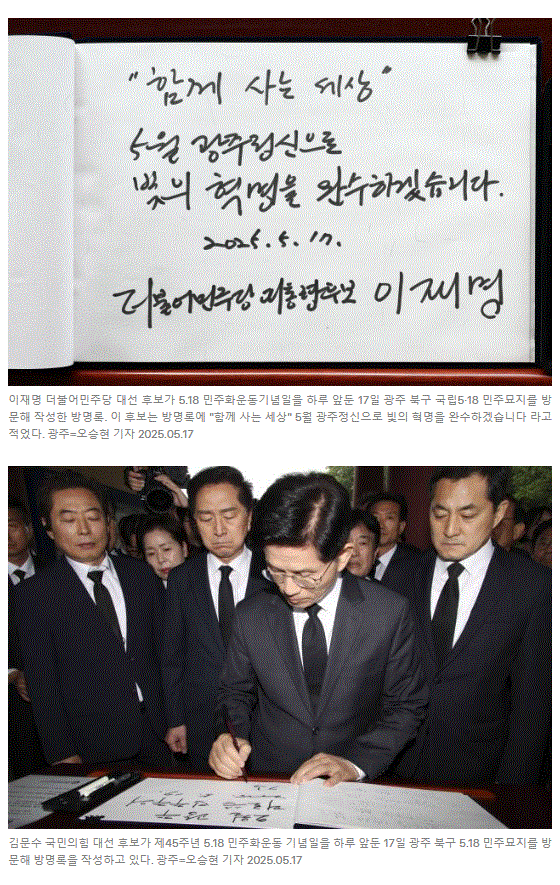 "함께 사는 세상"
5월 광주정신으로
빛의 혁명을 완수하겠습니다.
2025. 5. 17.
더불어민주당 대통령후보 이재명
이재명 더불어민주당 대선 후보가 5.18 민주화운동기념일을 하루 앞둔 17일 광주 북구 국립5·18 민주묘지를 방
문해 작성한 방명록. 이 후보는 방명록에 "함께 사는 세상" 5월 광주정신으로 빛의 혁명을 완수하겠습니다 라고
적었다. 광주=오승현 기자 2025.05.17
김문수 국민의힘 대선 후보가 제45주년 5.18 민주화운동 기념일을 하루 앞둔 17일 광주 북구 5.18 민주묘지를 방
문해 방명록을 작성하고 있다. 광주=오승현 기자 2025.05.17